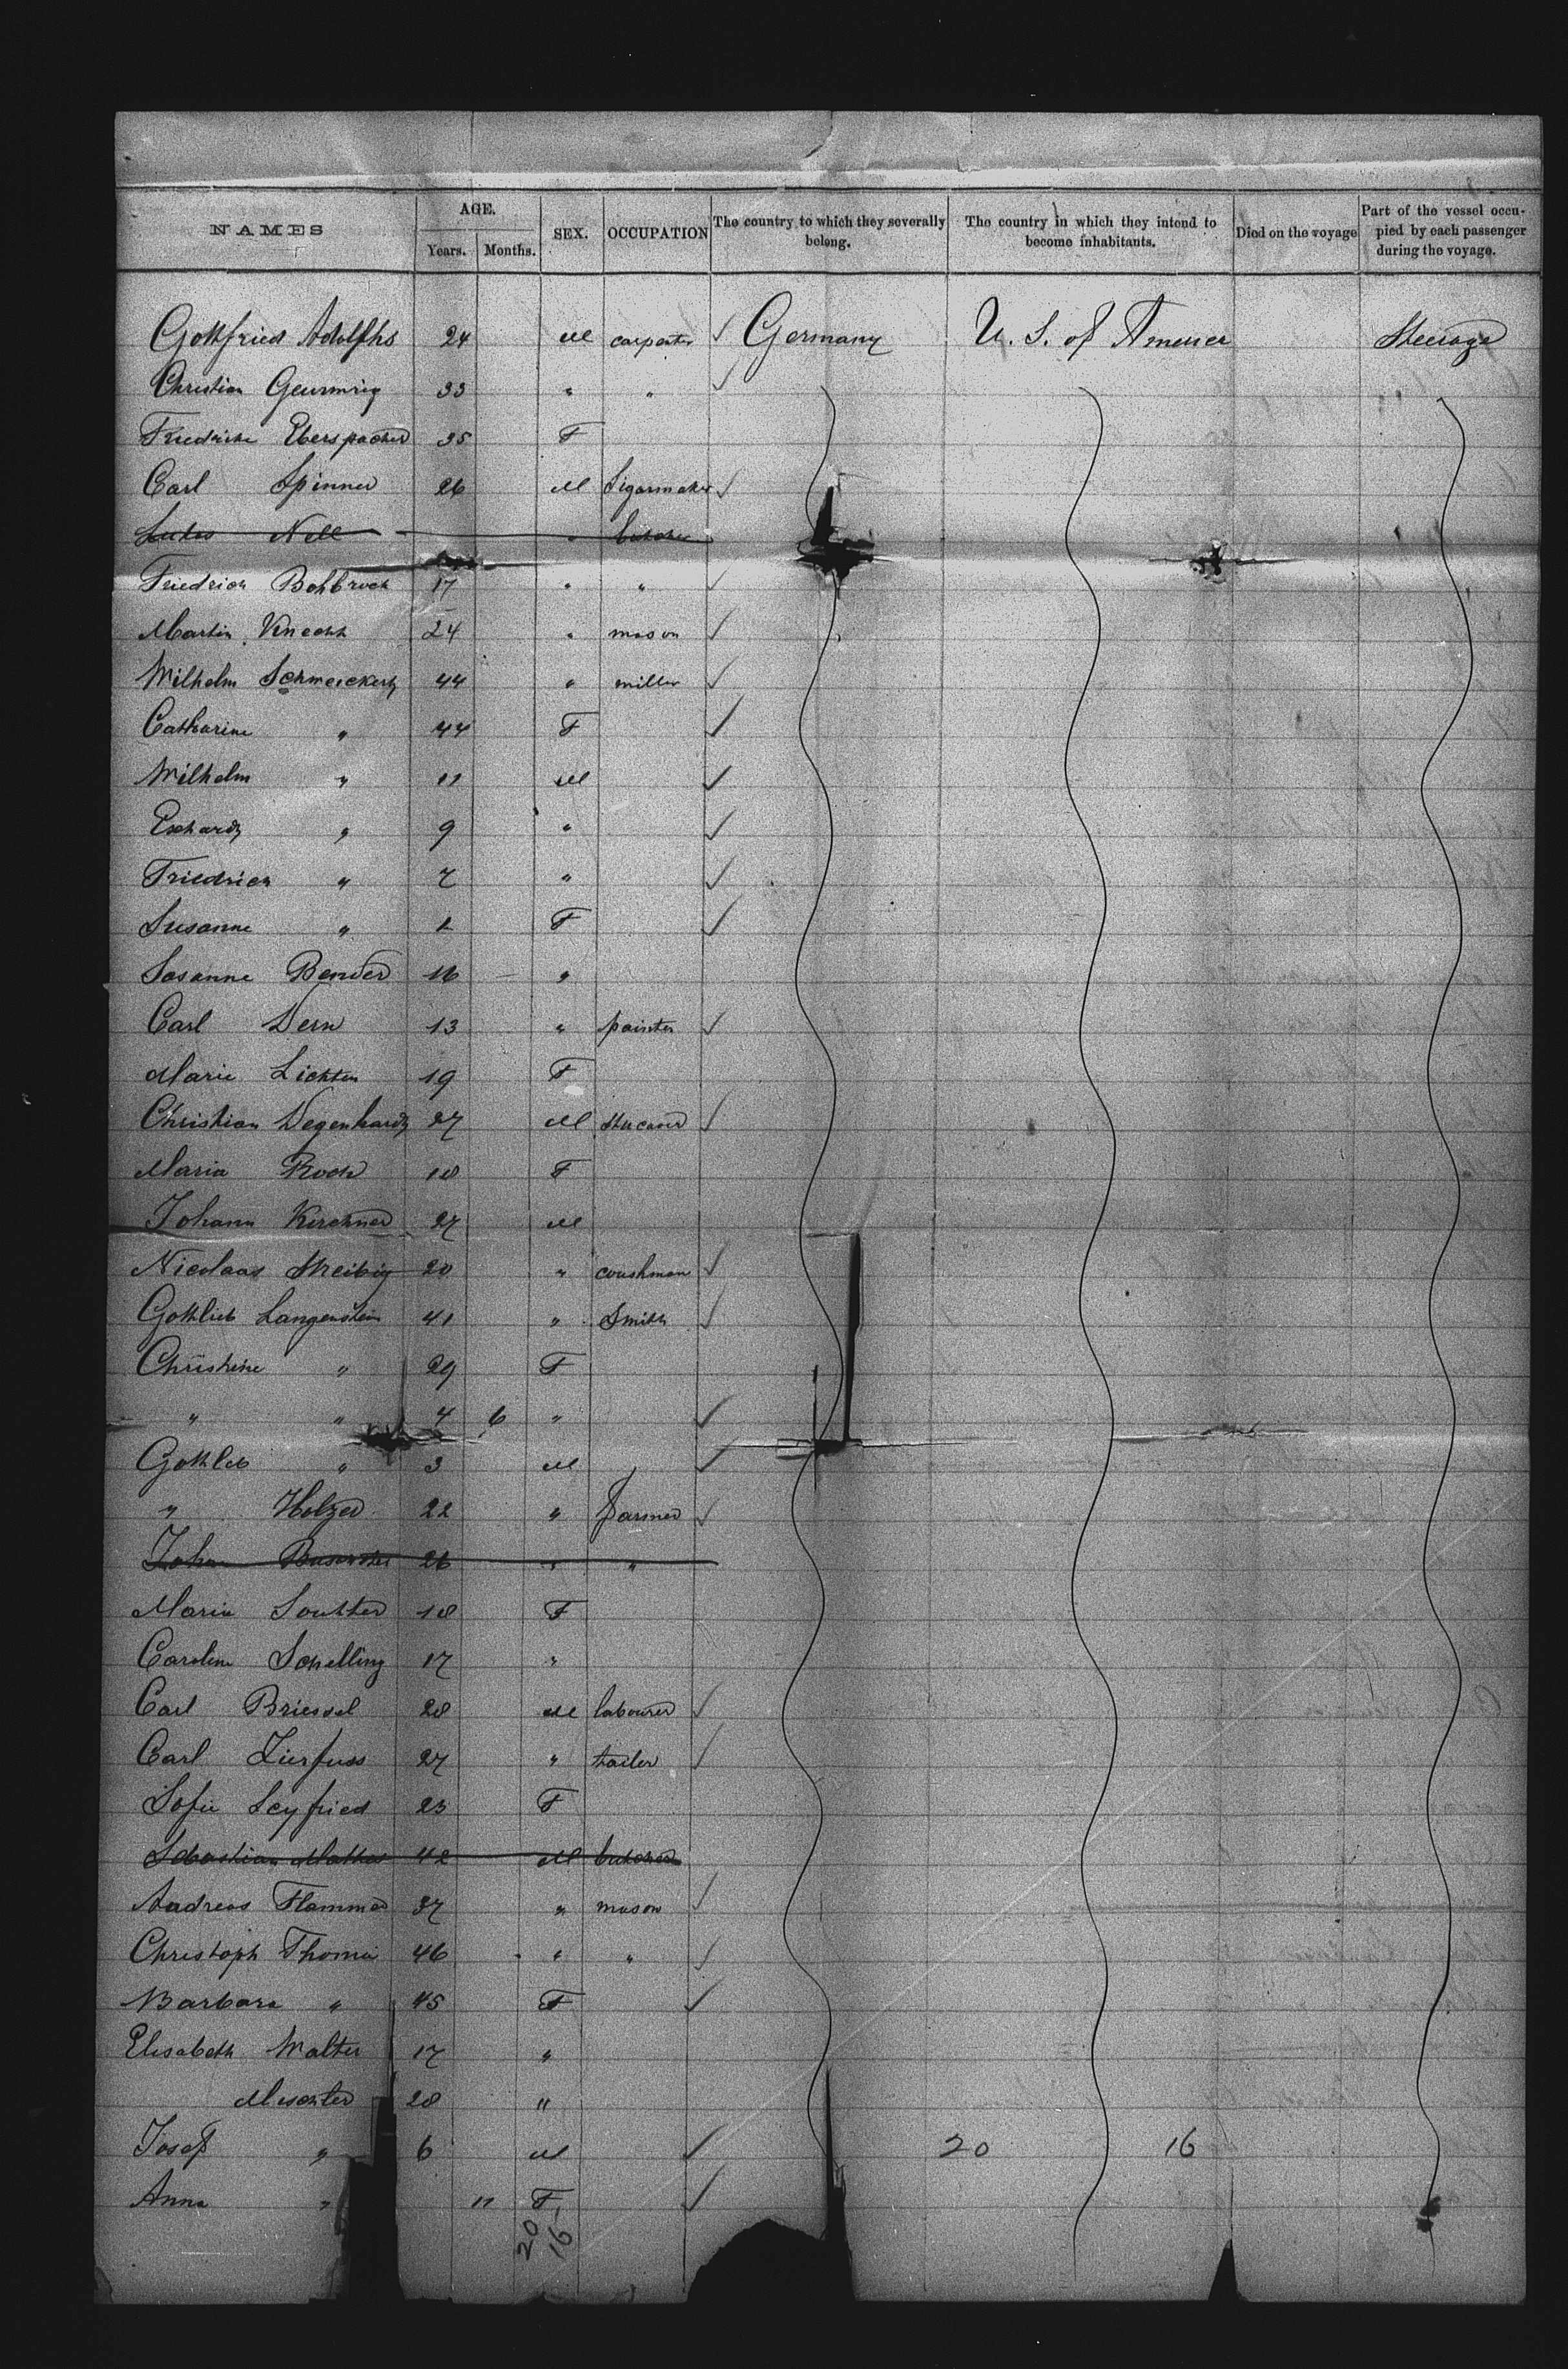 NAMES AGE. Years. Months. SEX. OCCUPATION The country to which they severally belong. The country in which they intend to become inhabitants. Died on the voyage Part of the vessel occupied by each passenger during the voyage.
Gottfried Adolfhs 24 M carpenter Germany U. S. of America Steerage
Christian 33 " "
Friedrike Eberspacher 35 F
Carl Spinner 26 M Sigarmaker
Nell " butcher
Friedrich Bohbrock 17 " "
Martin Knecht 24 " mason
Wilhelm Schmeickert 44 " miller
Catharine " 44 F
Wilhelm " 11 M
" 9 "
Friedrich " 7 "
Susanne " F
Sosanne Bender 16 "
Carl Dern 13 " painter
Marie Lichten 19 F
Christian Degenhardt 27 M
Maria 18 F
Johann Kirchner 27 M
Nicolaas Streibig 20 " coushman
Gottlieb Langenstein 41 " Smith
Christine " 29 F
" " 4 6 "
Gottleb " 3 M
" Holzer 22 " farmer
26 " "
Maria 18 F
Caroline Schelling 17 "
Carl Briessel 28 M labourer
Carl Zierfuss 27 " tailer
Sofie Seyfried 23 F
Sebastian Mathes 42 M butcher
Andreas Flammer 37 " mason
Christoph Thoma 46 " "
Barbara " 45 F
Elisabeth Walter 17 "
28 "
Josef " 6 M 20 16
Anna " 11 F
20
16